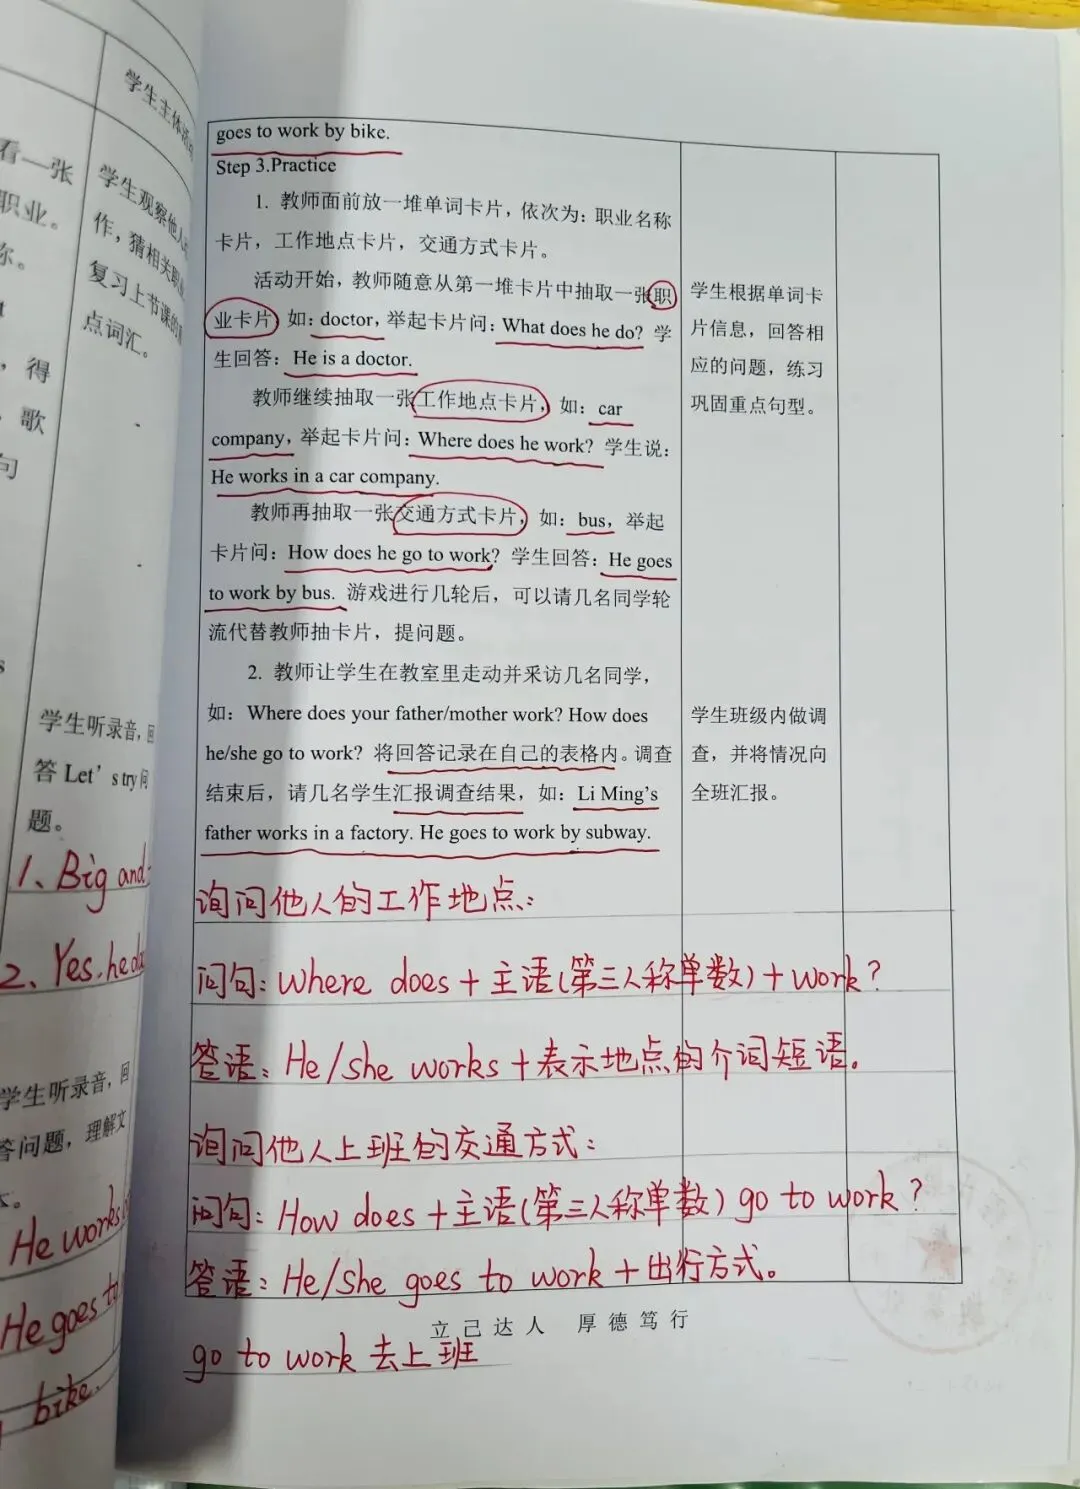 学生主体活
看一张
职业。
称。
得
歌
句
学生观察他人
作，猜相关职业
复习上节课的
点词汇。
学生听录音，回
答 Let's try 问
题。
1、Big and
2、Yes. he do
学生听录音，回
答问题，理解文
本。
He works
He goes to
bike.
goes to work by bike.
Step 3.Practice
1. 教师面前放一堆单词卡片，依次为：职业名称
卡片，工作地点卡片，交通方式卡片。
活动开始，教师随意从第一堆卡片中抽取一张职
业卡片，如：doctor，举起卡片问：What does he do? 学
生回答：He is a doctor.
教师继续抽取一张工作地点卡片，如：car
company，举起卡片问：Where does he work? 学生说：
He works in a car company.
教师再抽取一张交通方式卡片，如：bus，举起
卡片问：How does he go to work? 学生回答：He goes
to work by bus. 游戏进行几轮后，可以请几名同学轮
流代替教师抽卡片，提问题。
2. 教师让学生在教室里走动并采访几名同学，
如：Where does your father/mother work? How does
he/she go to work? 将回答记录在自己的表格内。调查
结束后，请几名学生汇报调查结果，如：Li Ming's
father works in a factory. He goes to work by subway.
学生根据单词卡
片信息，回答相
应的问题，练习
巩固重点句型。
学生班级内做调
查，并将情况向
全班汇报。
询问他人的工作地点：
问句：Where does + 主语(第三人称单数) + work?
答语：He/she works + 表示地点的介词短语。
询问他人上班的交通方式：
问句：How does + 主语(第三人称单数) go to work?
答语：He/she goes to work + 出行方式。
立己达人 厚德笃行
go to work 去上班